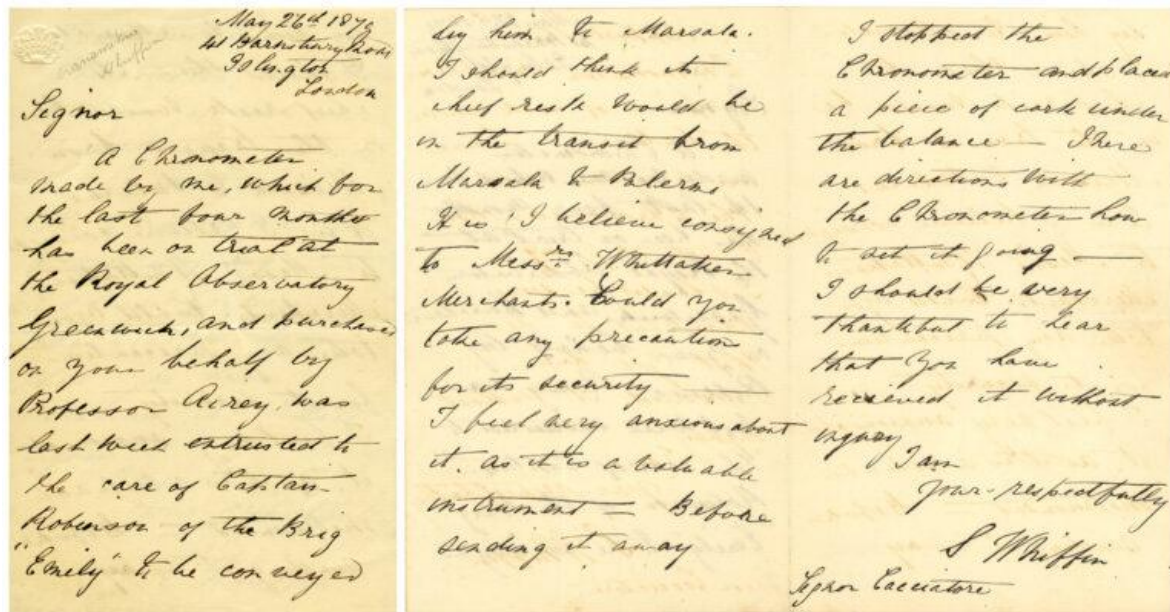 May 26th 187
41 Barnsbury Road
Islington
London
chronometer
Whiffin
Signor
A Chronometer
made by me, which for
the last four months
has been on trial at
the Royal Observatory
Greenwich, and purchased
on your behalf by
Professor Airey, was
last week entrusted to
the care of Captain
Robinson of the Brig
"Emily" to be conveyed
by him to Marsala.
I should think its
chief risk would be
in the transit from
Marsala to Palermo
It is I believe consigned
to Messrs Whittaker
Merchants. Could you
take any precaution
for its security —
I feel very anxious about
it, as it is a valuable
instrument — Before
sending it away
I stopped the
Chronometer and placed
a piece of cork under
the balance — There
are directions with
the Chronometer how
to set it going —
I should be very
thankful to hear
that you have
recieved it without
injury
I am
Your respectfully
S Whiffin
Signor Cacciatore